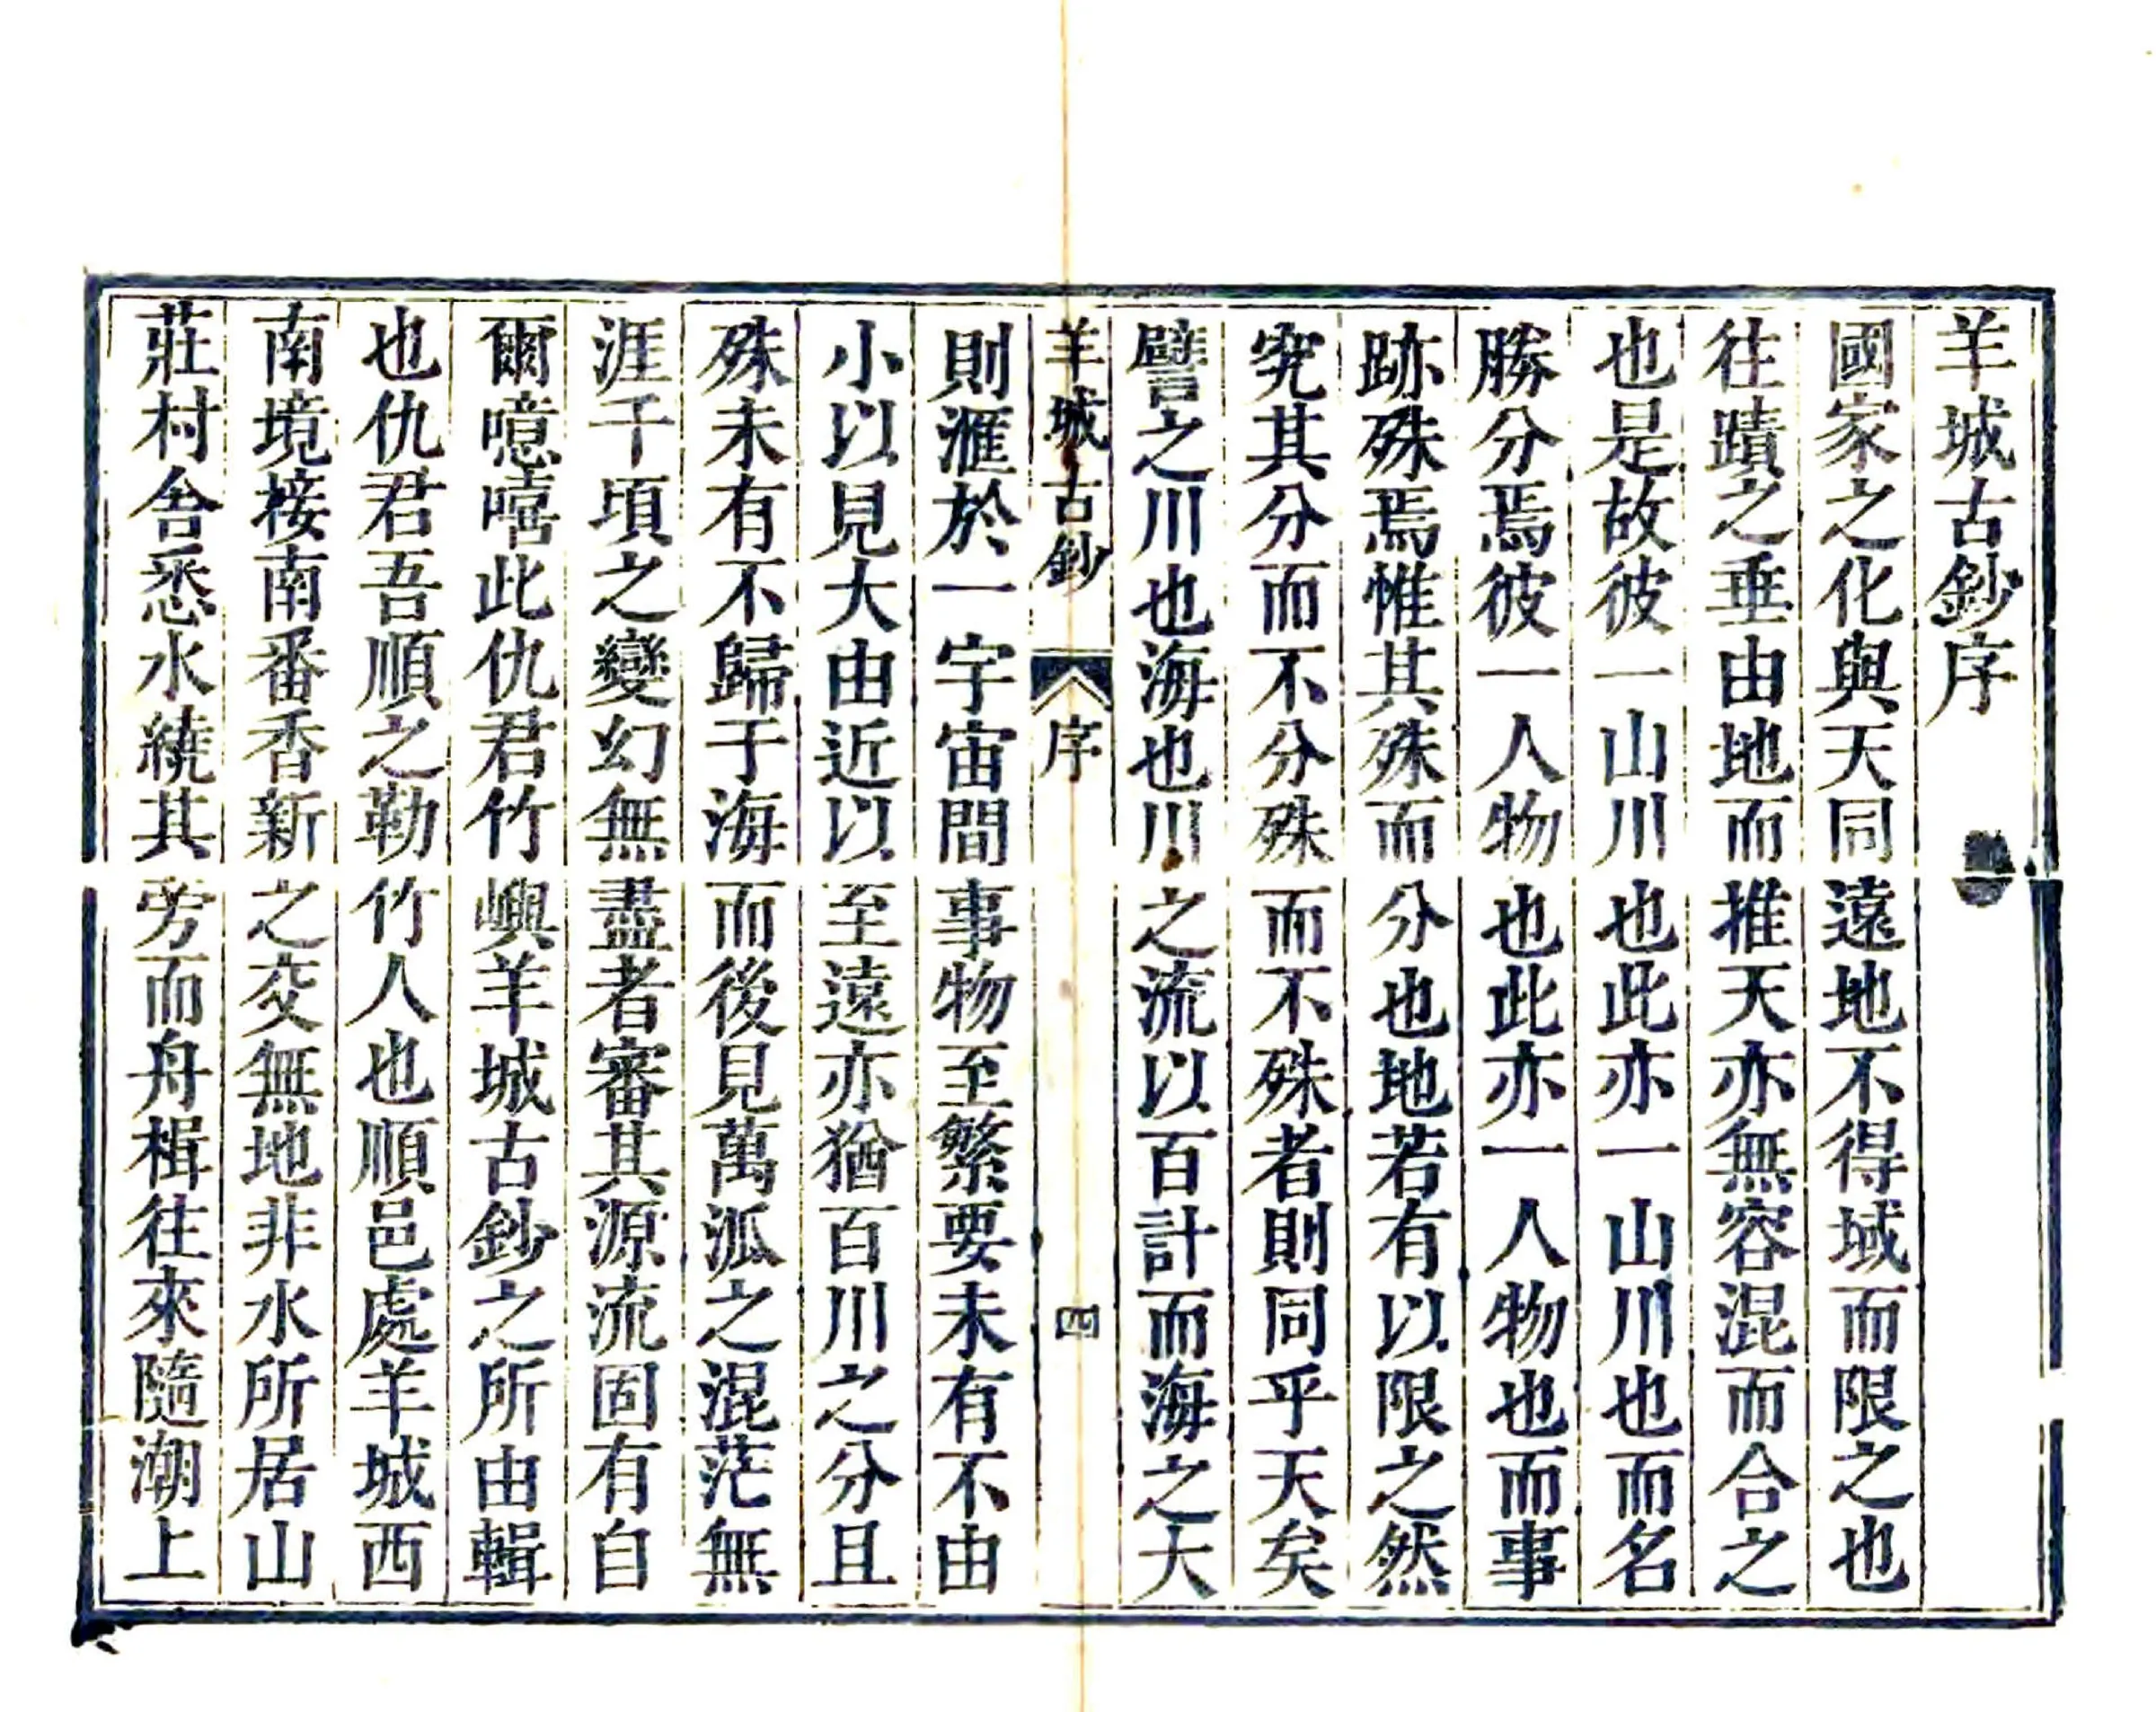 羊城古鈔序
國家之化與天同遠地不得域而限之也
往蹟之垂由地而推天亦無容混而合之
也是故彼一山川也此亦一山川也而名
勝分焉彼一人物也此亦一人物也而事
跡殊焉惟其殊而分也地若有以限之然
究其分而不分殊而不殊者則同乎天矣
譬之川也海也川之流以百計而海之大
羊城古鈔 序 四
則滙於一宇宙間事物至繁要未有不由
小以見大由近以至遠亦猶百川之分且
殊未有不歸于海而後見萬派之混茫無
涯千頃之變幻無盡者審其源流固有自
爾噫嘻此仇君竹嶼羊城古鈔之所由輯
也仇君吾順之勒竹人也順邑處羊城西
南境接南番香新之交無地非水所居山
莊村舍悉水繞其旁而舟楫往來隨潮上